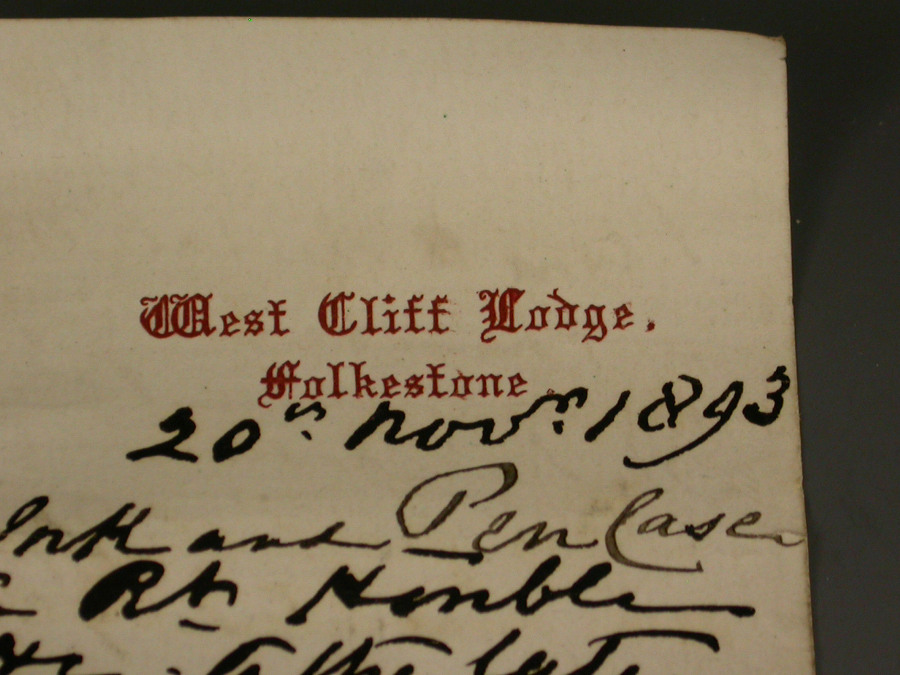 West Cliff Lodge.
Folkestone.
20th Novr. 1893
Ink and Pen Case
Rt Honble
to the late